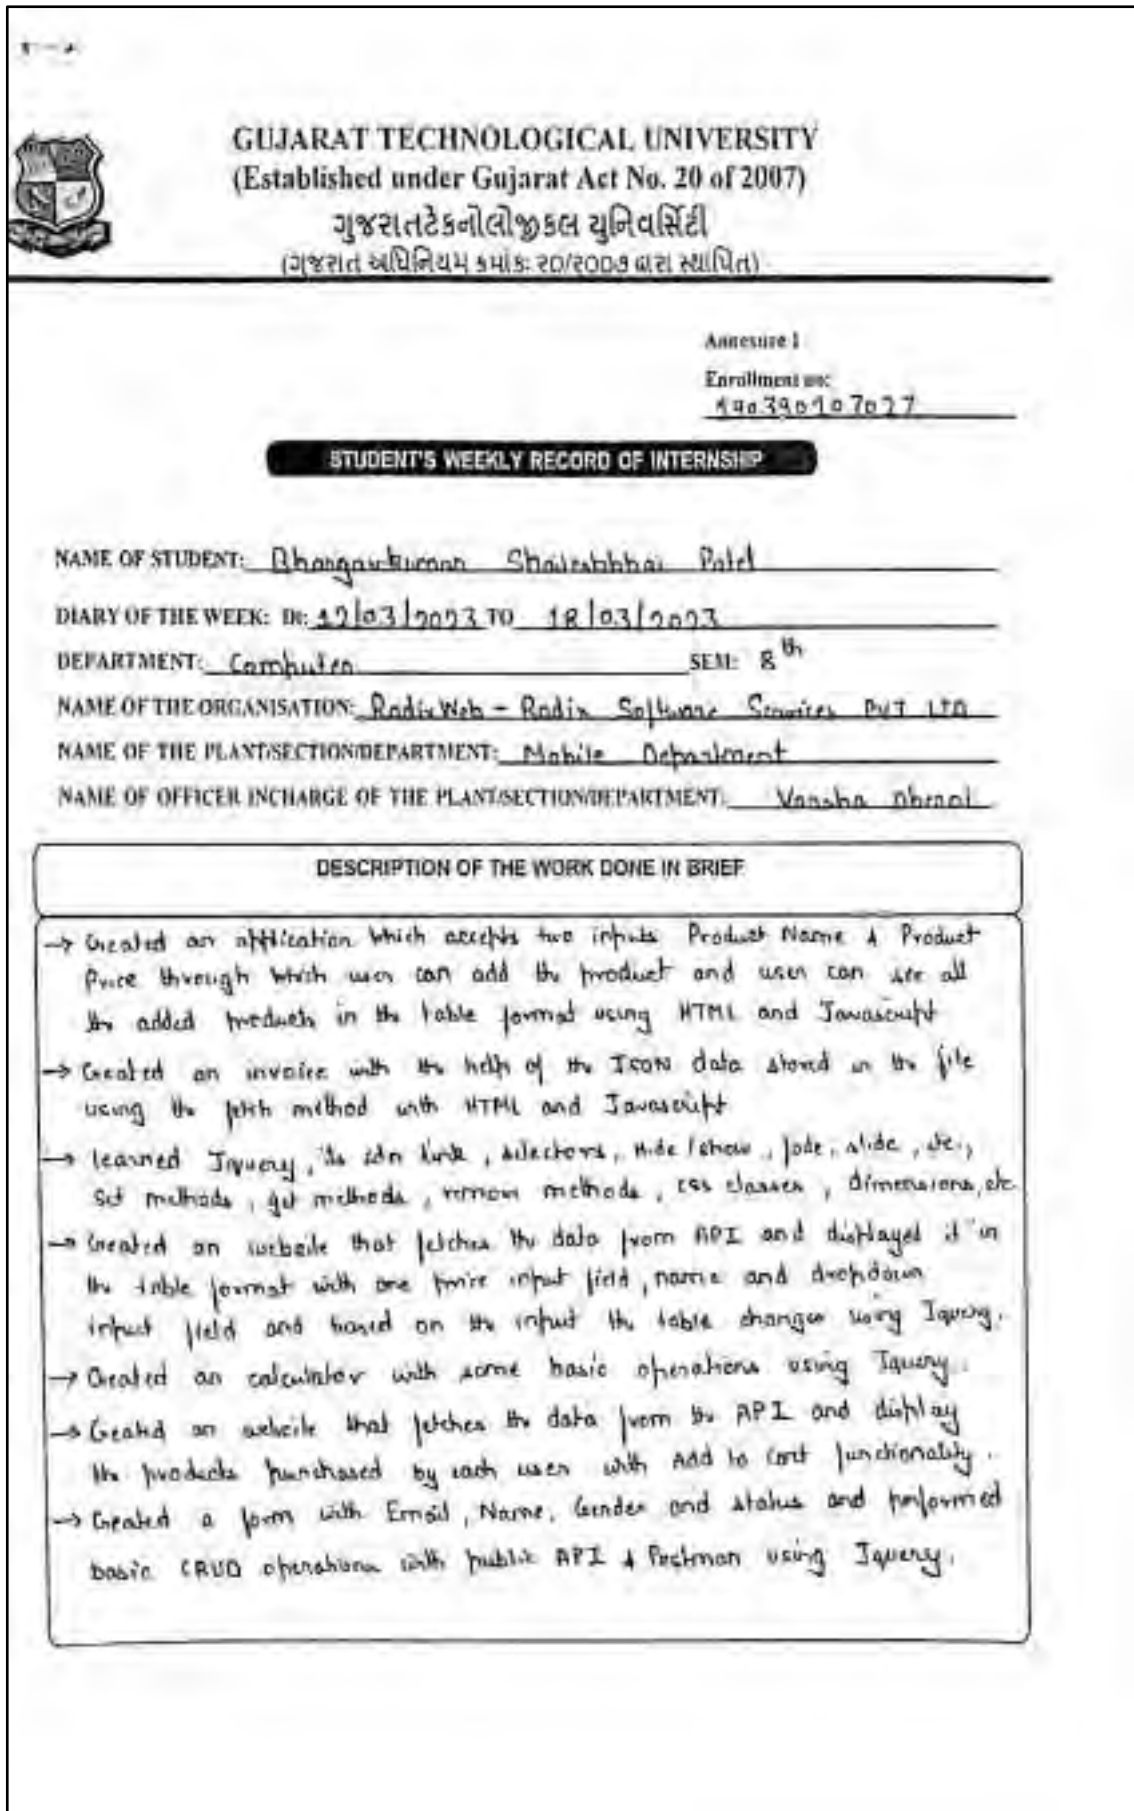 GUJARAT TECHNOLOGICAL UNIVERSITY
(Established under Gujarat Act No. 20 of 2007)
ગુજરાતટેકનોલોજીકલ યુનિવર્સિટી
(ગુજરાત અધિનિયમ ક્રમાંકઃ ૨૦/૨૦૦૭ દ્વારા સ્થાપિત)
Annexure 1
Enrollment no:
190390107027
STUDENT'S WEEKLY RECORD OF INTERNSHIP
NAME OF STUDENT: Bhargavkumar Shaileshbhai Patel
DIARY OF THE WEEK: Dt: 12/03/2023 TO 18/03/2023
DEPARTMENT: Computer SEM: 8th
NAME OF THE ORGANISATION: RadixWeb - Radix Software Services PVT LTD
NAME OF THE PLANT/SECTION/DEPARTMENT: Mobile Department
NAME OF OFFICER INCHARGE OF THE PLANT/SECTION/DEPARTMENT: Varsha
DESCRIPTION OF THE WORK DONE IN BRIEF
→ Created an application which accepts two inputs Product Name & Product
Price through which user can add the product and user can see all
the added products in the table format using HTML and Javascript
→ Created an invoice with the help of the JSON data stored in the file
using the fetch method with HTML and Javascript
→ learned Jquery, its cdn link, selectors, hide/show, fade, slide, etc.,
set methods, get methods, remove methods, css classes, dimensions, etc
→ Created an website that fetches the data from API and displayed it in
the table format with one price input field, name and dropdown
input field and based on the input the table changes using Jquery.
→ Created an calculator with some basic operations using Jquery.
→ Created an website that fetches the data from the API and display
the products purchased by each user with Add to cart functionality.
→ Created a form with Email, Name, Gender and status and performed
basic CRUD operations with public API & Postman using Jquery.